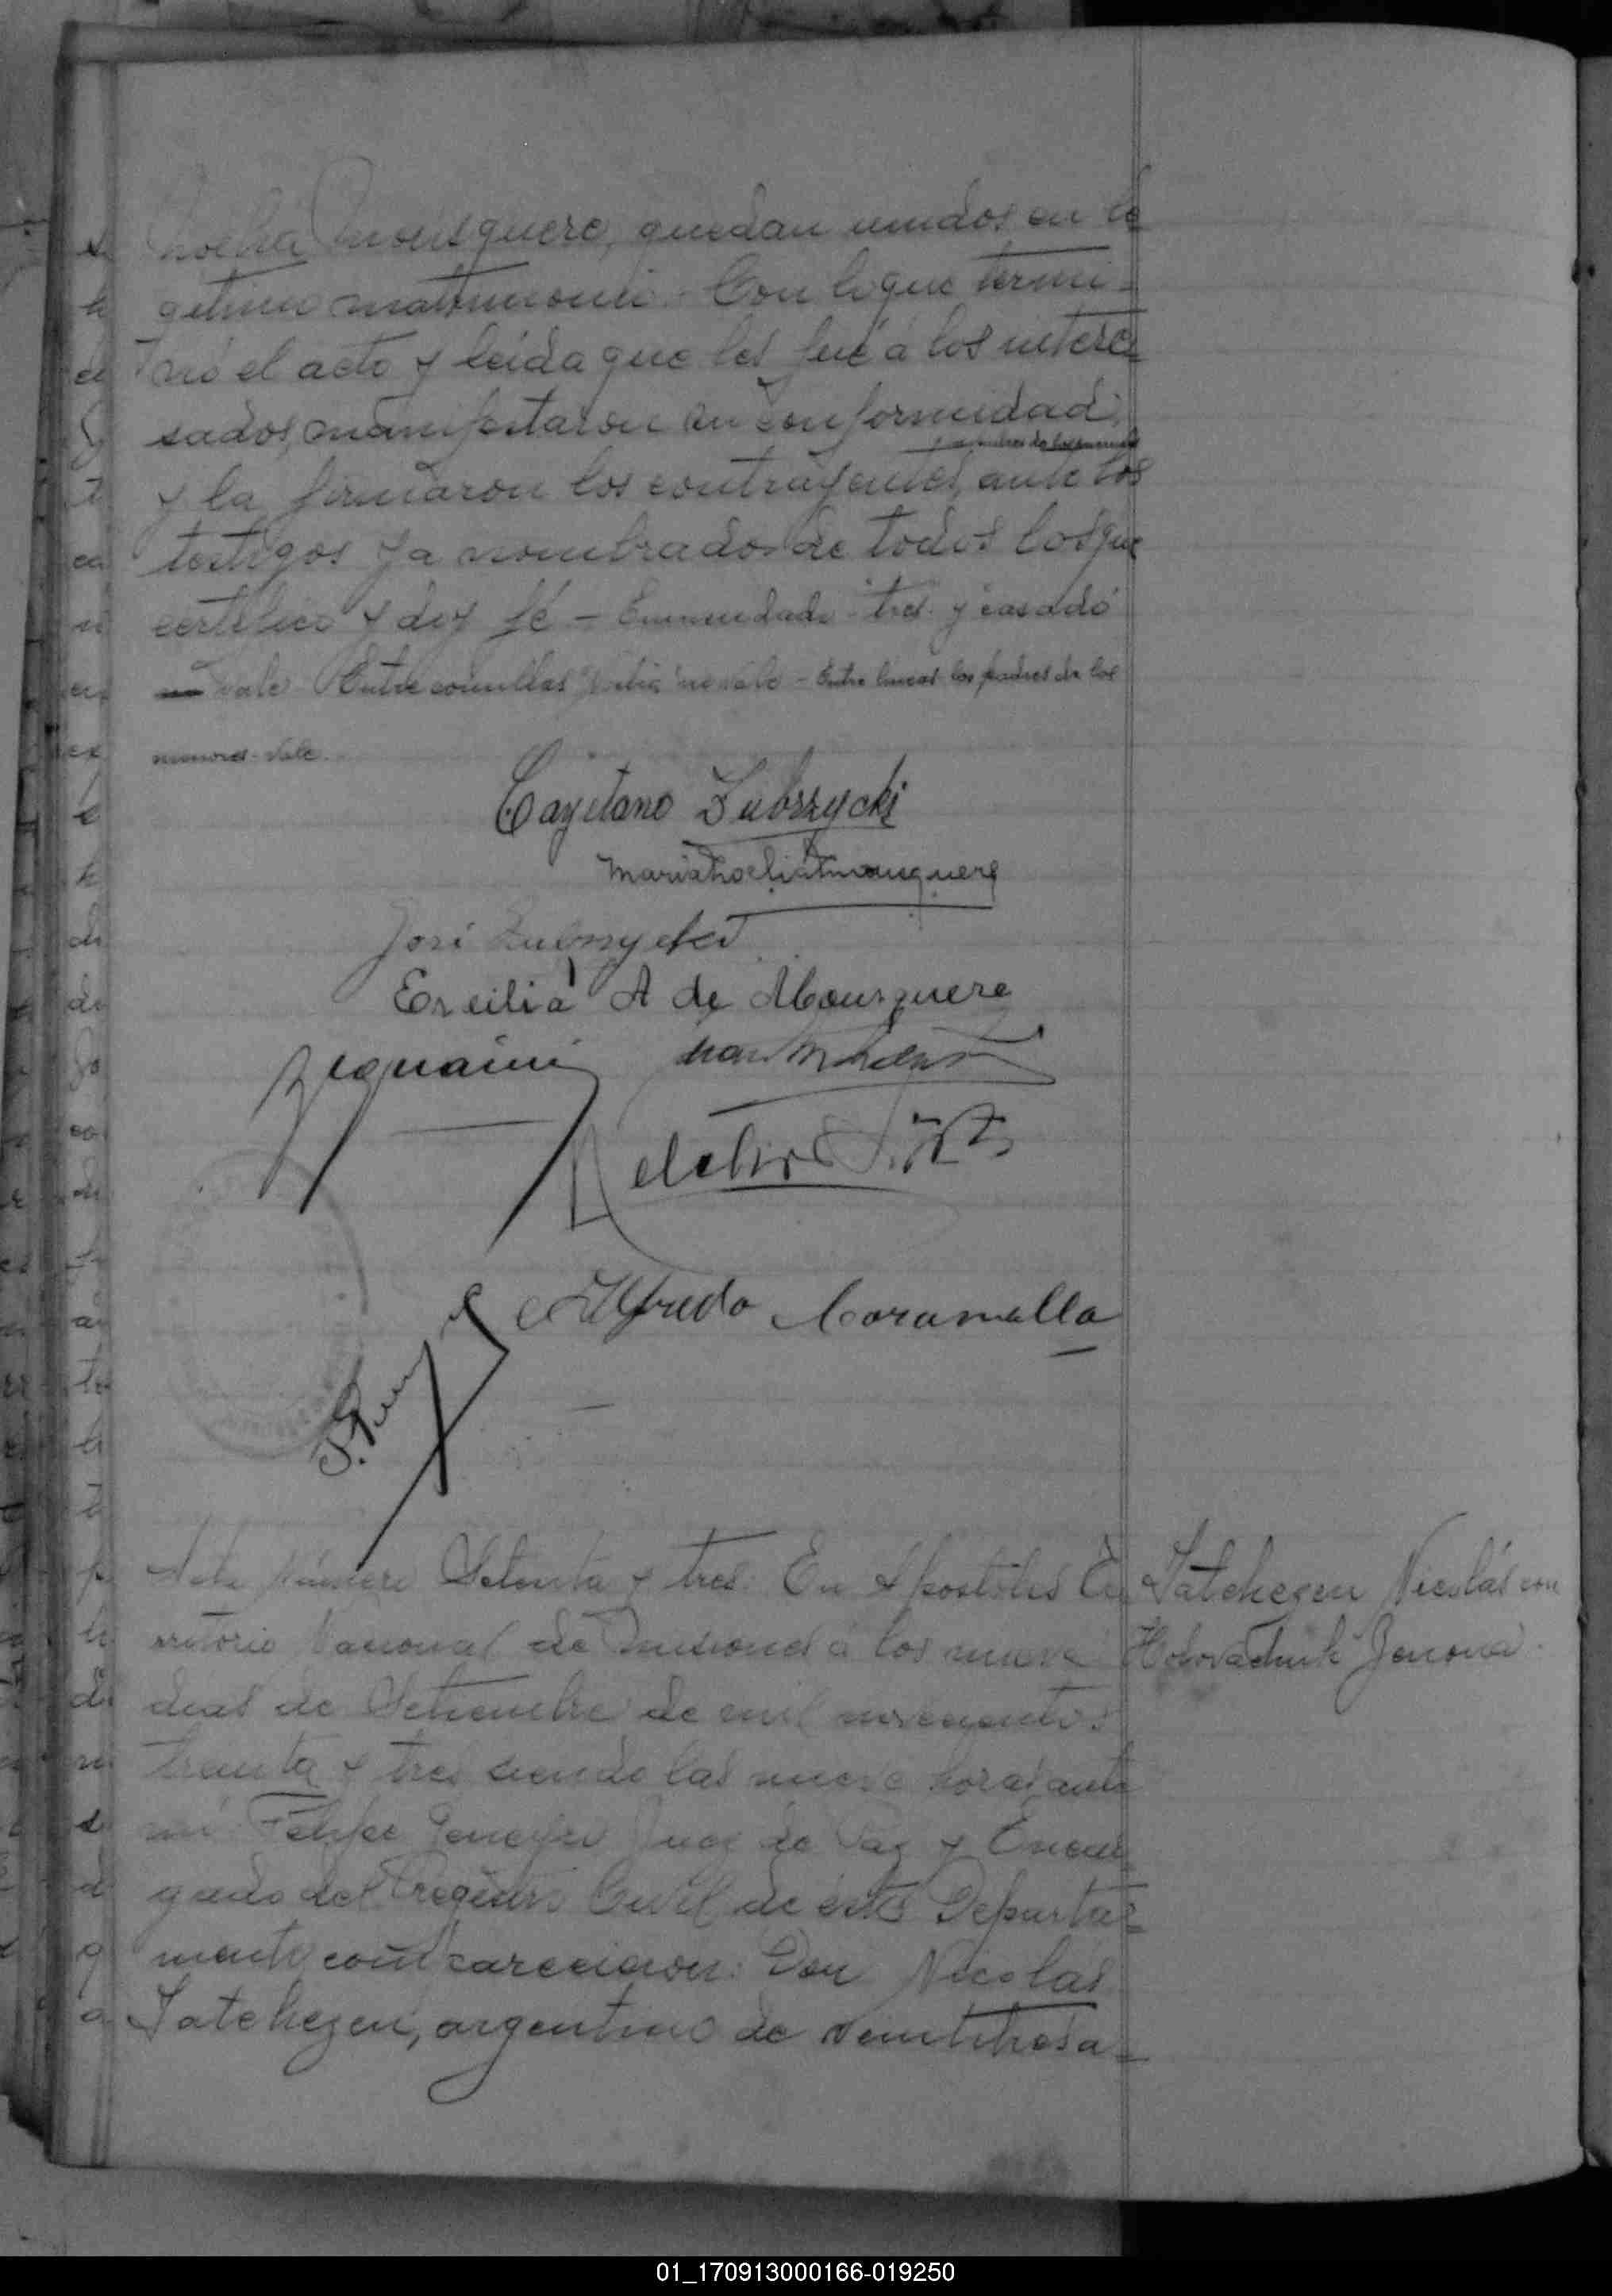 Noelia Mousquere, quedan unidos en le
gitimo matrimonio. Con lo que termi-
nó el acto y leida que les fué á los intere
sados, manifestaron su conformidad,
y la firmaron los contrayentes, ante los
testigos ya nombrados de todos los que
certifico y doy fé - Enmendado - tres - y casado
vale - Entre comillas no vale - Entre lineas los padres de los
menores - Vale.
Cayetano Zubrzycki
Maria Noelia Mousquere
José Zubrzycki
Ercilia A de Mousquere
Alfredo Caramella
Acta Número Setenta y tres: En Apostoles Te
rritorio Nacional de Misiones á los nueve
dias de Setiembre de mil novecientos
treinta y tres siendo las nueve horas, ante
mi Felipe Juez de Paz y Encar
gado del Registro Civil de este Departa-
mento comparecieron: Don Nicolás
Tatchezen, argentino de veintitres a-
Tatchezen Nicolás con
Holovachuk
01_170913000166-019250